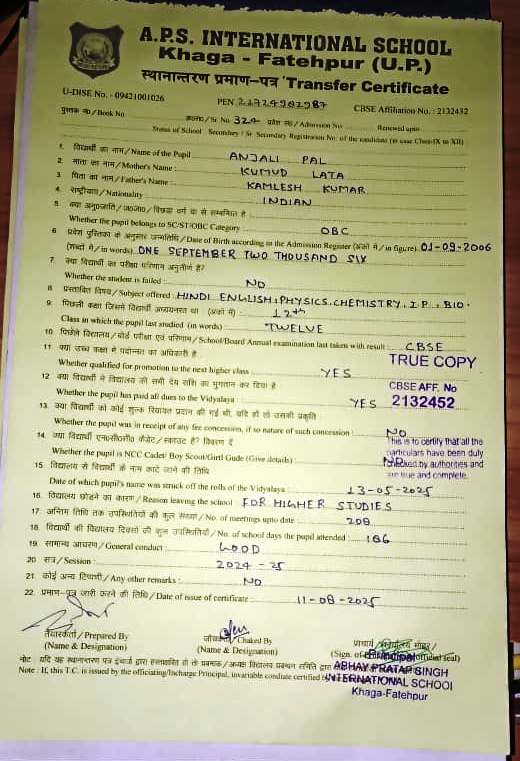 A.P.S. INTERNATIONAL SCHOOL
Khaga - Fatehpur (U.P.)
स्थानान्तरण प्रमाण-पत्र 'Transfer Certificate
U-DISE No. - 09421001026
PEN 22724902987
CBSE Affiliation No. : 2132432
पुस्तक सं०/Book No. क्र०सं०/Sr. No. 324 प्रवेश सं०/Admission No. Renewed upto
Status of School Secondary / Sr. Secondary Registration No. of the candidate (in case Class-IX to XII)
1. विद्यार्थी का नाम/Name of the Pupil ANJALI PAL
2. माता का नाम/Mother's Name : KUMUD LATA
3. पिता का नाम/Father's Name : KAMLESH KUMAR
4. राष्ट्रीयता/Nationality INDIAN
5. क्या अनु०जाति/ज०जा०/पिछड़ा वर्ग से सम्बन्धित है
Whether the pupil belongs to SC/ST/OBC Category : OBC
6. प्रवेश पुस्तिका के अनुसार जन्मतिथि/Date of Birth according to the Admission Register (अंकों में/in figure) 01-09-2006
(शब्दों में/in words) ONE SEPTEMBER TWO THOUSAND SIX
7. क्या विद्यार्थी का परीक्षा परिणाम अनुतीर्ण है?
Whether the student is failed : NO
8. प्रस्तावित विषय/Subject offered : HINDI ENGLISH, PHYSICS, CHEMISTRY, I.P., BIO.
9. पिछली कक्षा जिसमें विद्यार्थी अध्ययनरत था (अंकों में) : 12th
Class in which the pupil last studied (in words) TWELVE
10. पिछले विद्यालय/बोर्ड परीक्षा एवं परिणाम/School/Board Annual examination last taken with result : CBSE
11. क्या उच्च कक्षा में पदोन्नति का अधिकारी है
TRUE COPY
Whether qualified for promotion to the next higher class YES
12. क्या विद्यार्थी ने विद्यालय की सभी देय राशि का भुगतान कर दिया है
CBSE AFF. No
Whether the pupil has paid all dues to the Vidyalaya : YES 2132452
13. क्या विद्यार्थी को कोई शुल्क रियायत प्रदान की गई थी, यदि हो तो उसकी प्रकृति
Whether the pupil was in receipt of any fee concession, if so nature of such concession : NO
14. क्या विद्यार्थी एन०सी०सी० कैडेट/स्काउट है? विवरण दें
This is to certify that all the
particulars have been duly
Whether the pupil is NCC Cadet/ Boy Scout/Girl Gude (Give details) : NO
checked by authorities and
are true and complete.
15. विद्यालय से विद्यार्थी के नाम काटे जाने की तिथि
Date of which pupil's name was struck off the rolls of the Vidyalaya : 13-05-2025
16. विद्यालय छोड़ने का कारण / Reason leaving the school FOR HIGHER STUDIES
17. अन्तिम तिथि तक उपस्थितियों की कुल संख्या/No. of meetings upto date 208
18. विद्यार्थी की विद्यालय दिवसों की कुल उपस्थितियाँ/ No. of school days the pupil attended : 186
19. सामान्य आचरण/General conduct : GOOD
20. सत्र/Session : 2024-25
21. कोई अन्य टिप्पणी/Any other remarks : NO
22. प्रमाण-पत्र जारी करने की तिथि/Date of issue of certificate 11-08-2025
तैयारकर्ता/Prepared By
(Name & Designation)
Chaked By
(Name & Designation)
प्राचार्य
(Sign. of Principal official seal)
Principal
ABHAY PRATAP SINGH
INTERNATIONAL SCHOOL
Khaga-Fatehpur
नोट : यदि यह स्थानान्तरण पत्र इंचार्ज द्वारा हस्ताक्षरित हो तो प्रबन्धक/अध्यक्ष विद्यालय प्रबन्धन समिति द्वारा
Note : If, this T.C. is issued by the officiating/Incharge Principal, invariable conduite certified